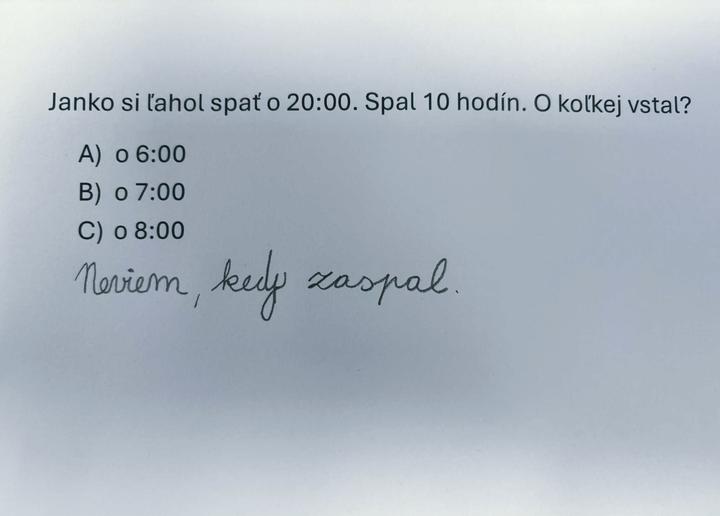 Janko si ľahol spať o 20:00. Spal 10 hodín. O koľkej vstal?
A) o 6:00
B) o 7:00
C) o 8:00
Neviem, kedy zaspal.